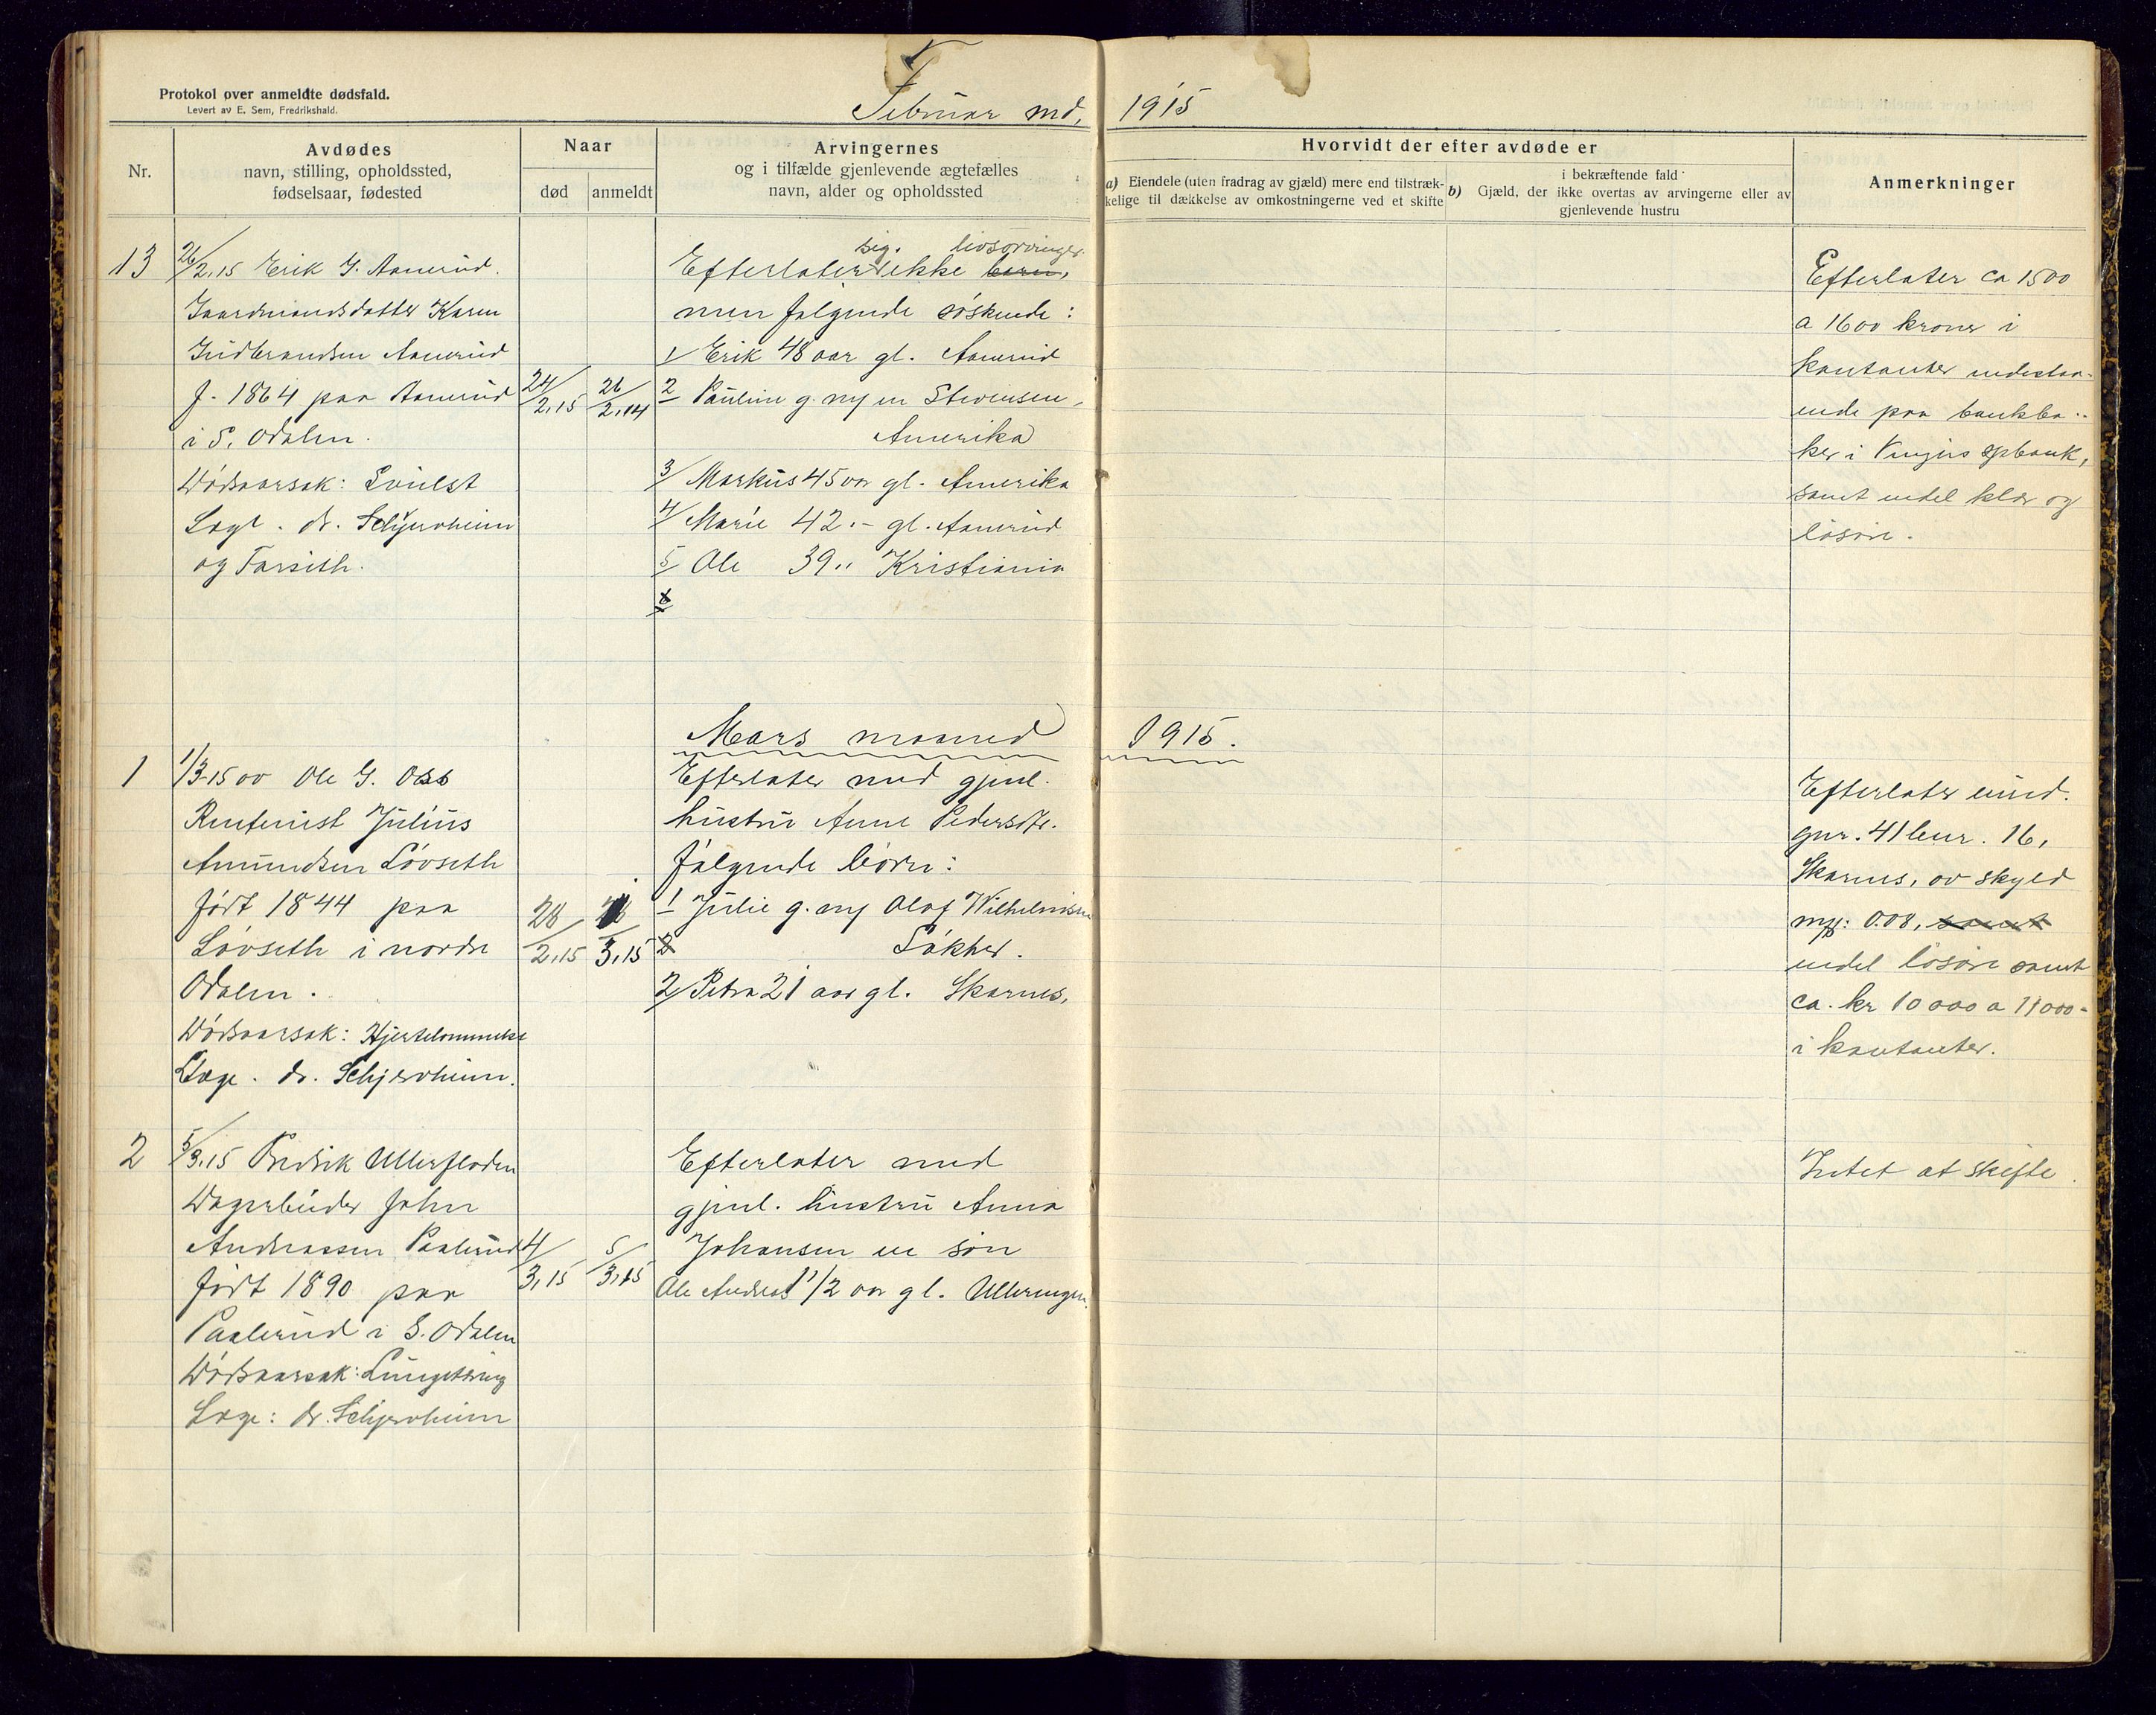 Protokol over anmeldte dødsfald.
Levert av E. Sem, Fredrikshald.
Februar md. 1915
Nr.
Avdødes
navn, stilling, opholdssted,
fødselsaar, fødested
Naar
død
anmeldt
Arvingernes
og i tilfælde gjenlevende ægtefælles
navn, alder og opholdssted
Hvorvidt der efter avdøde er
a) Eiendele (uten fradrag av gjæld) mere end tilstræk-
kelige til dækkelse av omkostningerne ved et skifte
i bekræftende fald
b) Gjæld, der ikke overtas av arvingerne eller av
gjenlevende hustru
Anmerkninger
13
26/2.15 Erik G. Aamerud.
Gaardmandsdatter Karen
Gudbrandsen Aamerud
f. 1864 paa Aamerud
i S. Odalen.
Dødsaarsak: Svulst
Læge. dr. Schjerveheim
og Farseth.
24/2.15
26/2.14
sig. livsarvinger
Efterlater ikke barn,
men følgende søskende:
1/ Erik 48 aar gl. Aamerud
2 Pauline g. m/ en Stevensen,
Amerika
3/ Markus 45 aar gl. Amerika
4/ Marie 42 .- gl. Aamerud
5/ Ole 39 ,, Kristiania
6
Efterlater ca 1500
a 1600 kroner i
kontanter indestaa-
ende paa bankbø-
ker i Vingers spbank,
samt endel klær og
løsøre.
Mars maaned 1915.
1
1/3-15 av Ole G. Os
Rentenist Julius
Amundsen Løvseth
født 1844 paa
Løvseth i nordre
Odalen.
Dødsaarsak: Hjertelammelse
Læge. dr. Schjerveheim.
28/2.15
3.15
Efterlater med gjenl.
hustru Anne Pedersdtr.
følgende børn:
1 Julie g. m/ Olaf Wilhelmsen
2
Sækher.
2/ Petra 21 aar gl. Skarnes,
Efterlater eiend.
gnr. 41 bnr. 16,
Skarnes, av skyld
mrk: 0.08, samt
endel løsøre samt
ca. kr 10 000 a 11000-
i kontanter.
2
5/3.15 Fredrik Ullerfloden
Dagarbeider John
Andreassen Paalerud
født 1890 paa
Paalerud i S. Odalen
Dødsaarsak: Lungetæring
Læge: dr. Schjerveheim
4/3.15
5/3.15
Efterlater med
gjenl. hustru Anna
Johansen en søn
Ole Andreas 1 1/2 aar gl. Ulleringen.
Intet at skifte.